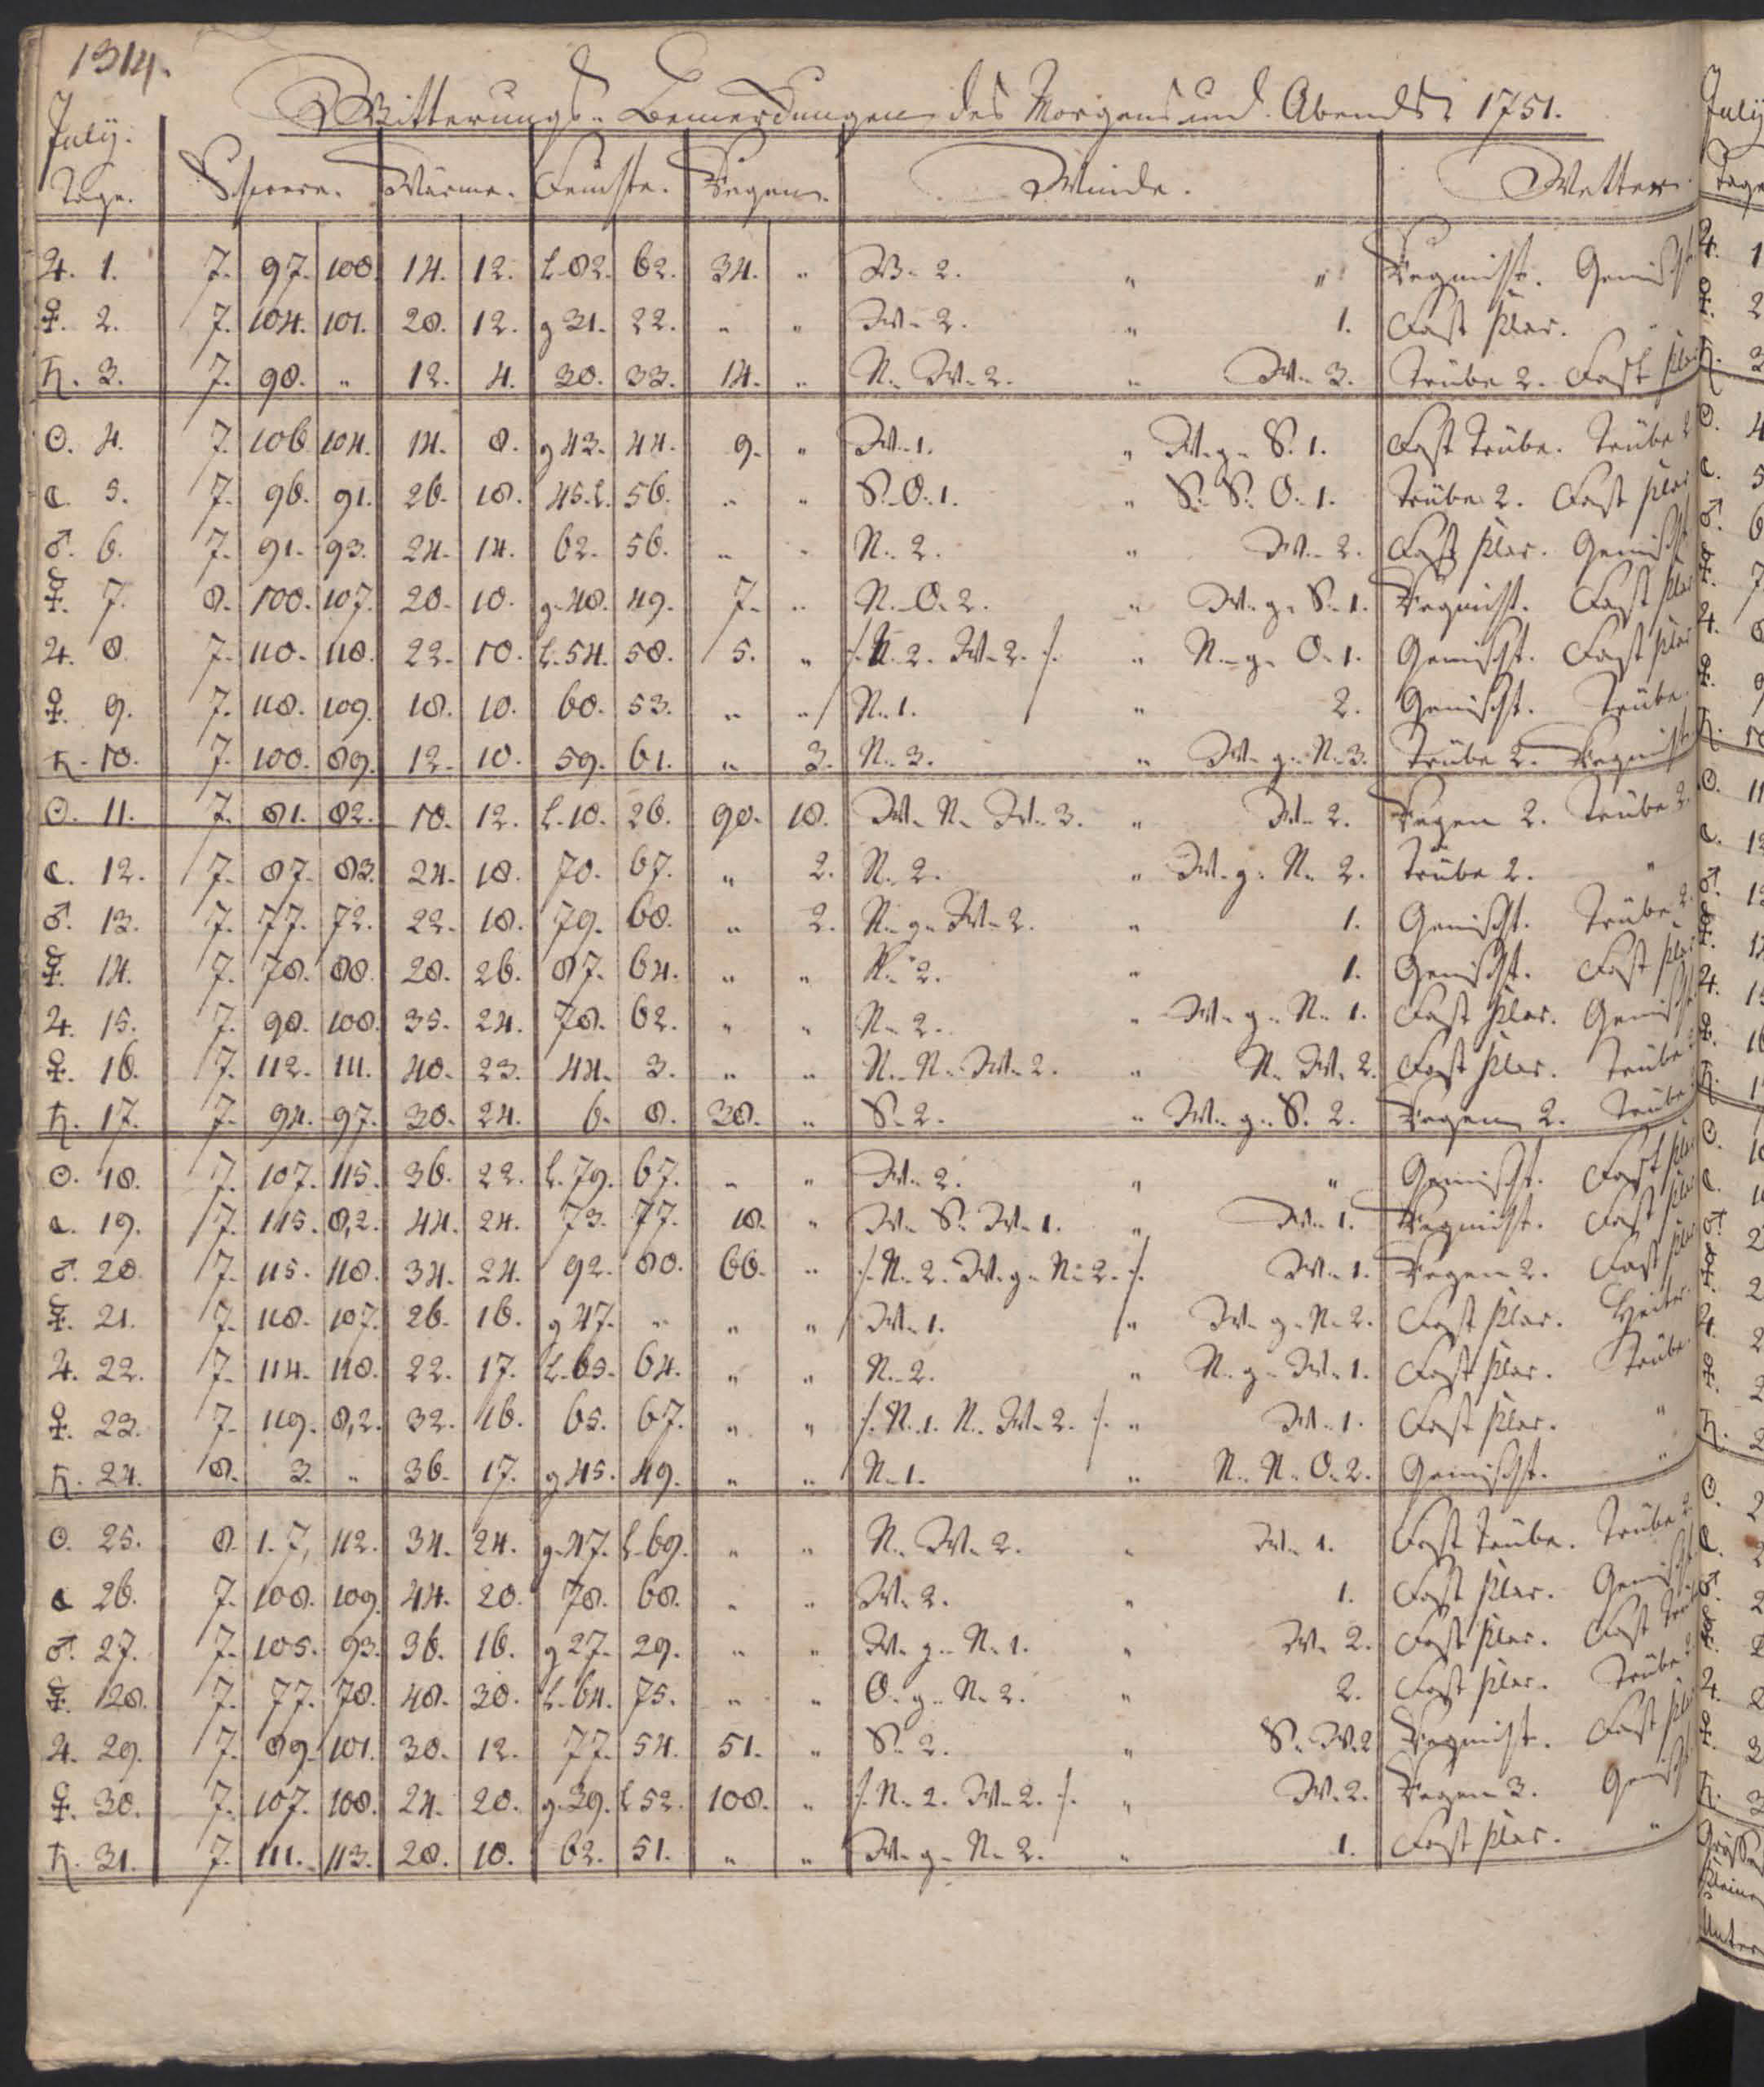 1314.
Witterungs-Bemerckungen des Morgens und Abends 1751.
July.
Tage. Schwere. Wärme. Feuchte. Regen. Winde. Wetter.
♃. 1. 7. 97. 100. 14. 12. L. 82. 62. 34. " W. 2. " " Regnicht. Gemischt
♀. 2. 7. 104. 101. 20. 12. g 31. 22. " " W. 2. " 1. Fast klar. "
♄. 3. 7. 98. " 12. 4. 30. 33. 14. " N. W. 2. " W. 3. Trübe 2. Fast klar
☉. 4. 7. 106. 104. 14. 8. g 43. 44. 9. " W. 1. " W. g. S. 1. Fast Trübe. Trübe 2
☾. 5. 7. 96. 91. 26. 18. 45. L. 56. " " S. O. 1. " S. S. O. 1. Trübe 2. Fast klar
♂. 6. 7. 91. 93. 24. 14. 62. 56. " " N. 2. " W. 2. Fast klar. Gemischt
☿. 7. 8. 100. 107. 20. 10. g. 48. 49. 7. " N. O. 2. " W. g. S. 1. Regnicht. Fast klar
♃. 8. 7. 110. 118. 22. 10. L. 54. 58. 5. " /. N. 2. W. 2. /. " N. g. O. 1. Gemischt. Fast klar
♀. 9. 7. 118. 109. 18. 10. 60. 53. " " N. 1. " 2. Gemischt. Trübe.
♄. 10. 7. 100. 89. 12. 10. 59. 61. " 3. N. 3. " W. g. N. 3. Trübe 2. Regnicht
☉. 11. 7. 81. 82. 10. 12. L. 10. 26. 90. 18. W. N. W. 3. " W. 2. Regen 2. Trübe 2.
☾. 12. 7. 87. 83. 24. 18. 70. 67. " 2. N. 2. " W. g. N. 2. Trübe 2. "
♂. 13. 7. 77. 72. 22. 18. 79. 68. " 2. N. g. W. 2. " 1. Gemischt. Trübe 2.
☿. 14. 7. 78. 88. 28. 26. 87. 64. " " N. 2. " 1. Gemischt. Fast klar
♃. 15. 7. 98. 108. 35. 24. 78. 62. " " N. 2. " W. g. N. 1. Fast klar. Gemischt
♀. 16. 7. 112. 111. 40. 23. 44. 3. " " N. N. W. 2. " N. W. 2. Fast klar. Trübe 2
♄. 17. 7. 94. 97. 30. 24. 6. 8. 38. " S. 2. " W. g. S. 2. Regen 2. Trübe 2
☉. 18. 7. 107. 115. 36. 22. L. 79. 67. " " W. 2. " " Gemischt. Fast klar
☾. 19. 7. 115. 8, 2. 44. 24. 73. 77. 18. " W. S. W. 1. " W. 1. Regnicht. Fast klar
♂. 20. 7. 115. 118. 34. 24. 92. 80. 66. " /. N. 2. W. g. N. 2. /. W. 1. Regen 2. Fast klar
☿. 21. 7. 118. 107. 26. 16. g 47. " " " W. 1. " W. g. N. 2. Fast klar. Heiter.
♃. 22. 7. 114. 118. 22. 17. L. 65. 64. " " N. 2. " N. g. W. 1. Fast klar. Trübe.
♀. 23. 7. 119. 8, 2. 32. 16. 65. 67. " " /. N. 1. N. W. 2. /. " W. 1. Fast klar. "
♄. 24. 8. 3. " 36. 17. g 45. 49. " " N. 1. " N. N. O. 2. Gemischt. "
☉. 25. 8. 1. 7, 112. 34. 24. g. 47. L. 69. " " N. W. 2. " W. 1. Fast Trübe. Trübe 2.
☾. 26. 7. 108. 109. 44. 20. 78. 68. " " W. 2. " 1. Fast klar. Gemischt
♂. 27. 7. 105. 93. 36. 16. g 27. 29. " " W. g. N. 1. " W. 2. Fast klar. Fast Trübe
☿. 28. 7. 77. 78. 48. 30. L. 64. 75. " " O. g. N. 2. " 2. Fast klar. Trübe 2
♃. 29. 7. 89. 101. 30. 12. 77. 54. 51. " S. 2. " S. W. 2 Regnicht. Fast klar
♀. 30. 7. 107. 108. 24. 20. g. 39. L 52. 108. " /. N. 2. W. 2. /. " W. 2. Regen 3. Gemischt
♄. 31. 7. 111. 113. 20. 10. 62. 51. " " W. g. N. 2. " 1. Fast klar. "